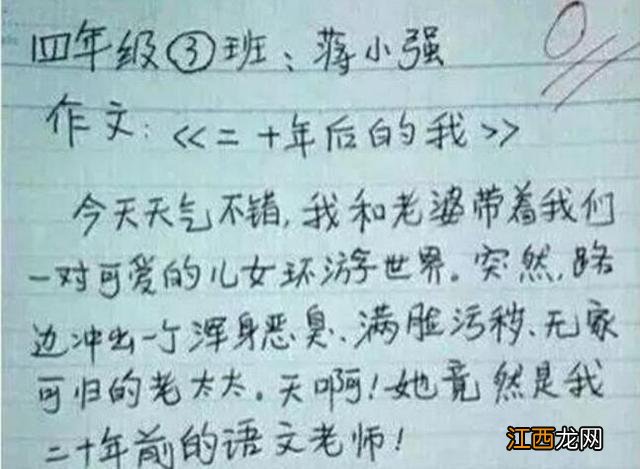 四年级③班：蒋小强
0
作文：<<二十年后的我>>
今天天气不错，我和老婆带着我们
一对可爱的儿女环游世界。突然，路
边冲出一个浑身恶臭、满脸污秽、无家
可归的老太太。天啊！她竟然是我
二十年前的语文老师！
江西龙网